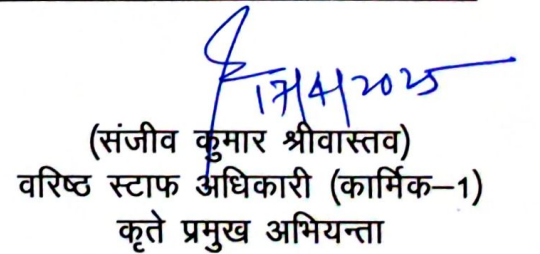 17/4/2025
(संजीव कुमार श्रीवास्तव)
वरिष्ठ स्टाफ अधिकारी (कार्मिक–1)
कृते प्रमुख अभियन्ता